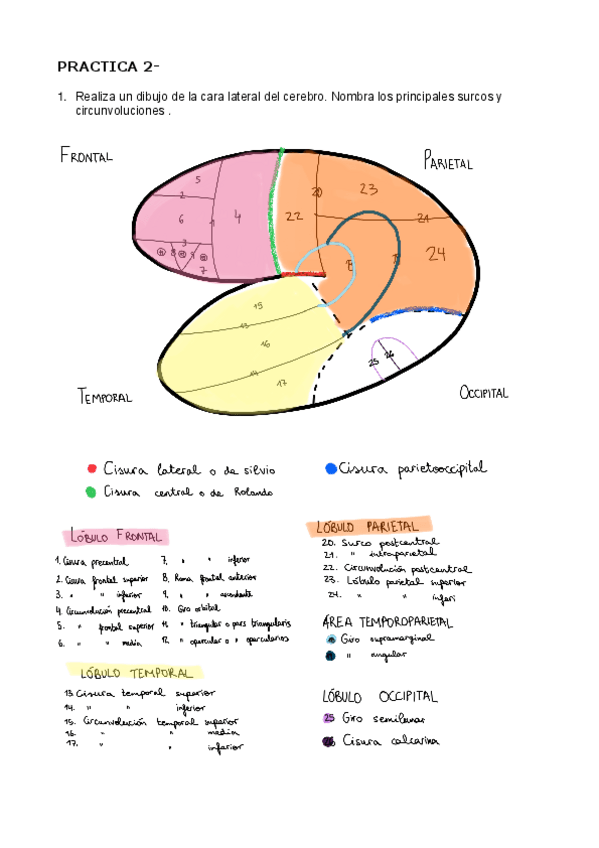 PRACTICA 2-
1. Realiza un dibujo de la cara lateral del cerebro. Nombra los principales surcos y
circunvoluciones .
FRONTAL
PARIETAL
5
2
6
1
4
3
7
20
23
22
21
24
8
15
13
16
14
17
25 26
TEMPORAL
OCCIPITAL
Cisura lateral o de silvio
Cisura parietooccipital
Cisura central o de Rolando
LÓBULO FRONTAL
1. Cisura precentral
2. Cisura frontal superior
3. " " inferior
4. Circunvolución precentral
5. " frontal superior
6. " " media
7. " " inferior
8. Rama frontal anterior
9. " " ascendente
10. Giro orbital
11. " triangular o pars triangularis
12. " opercular o " opercularis
LÓBULO TEMPORAL
13. Cisura temporal superior
14. " " inferior
15. Circunvolución temporal superior
16. " " media
17. " " inferior
LÓBULO PARIETAL
20. Surco postcentral
21. " intraparietal
22. Circunvolución postcentral
23. Lóbulo parietal superior
24. " " inferi
ÁREA TEMPOROPARIETAL
Giro supramarginal
" angular
LÓBULO OCCIPITAL
25 Giro semilunar
Cisura calcarina